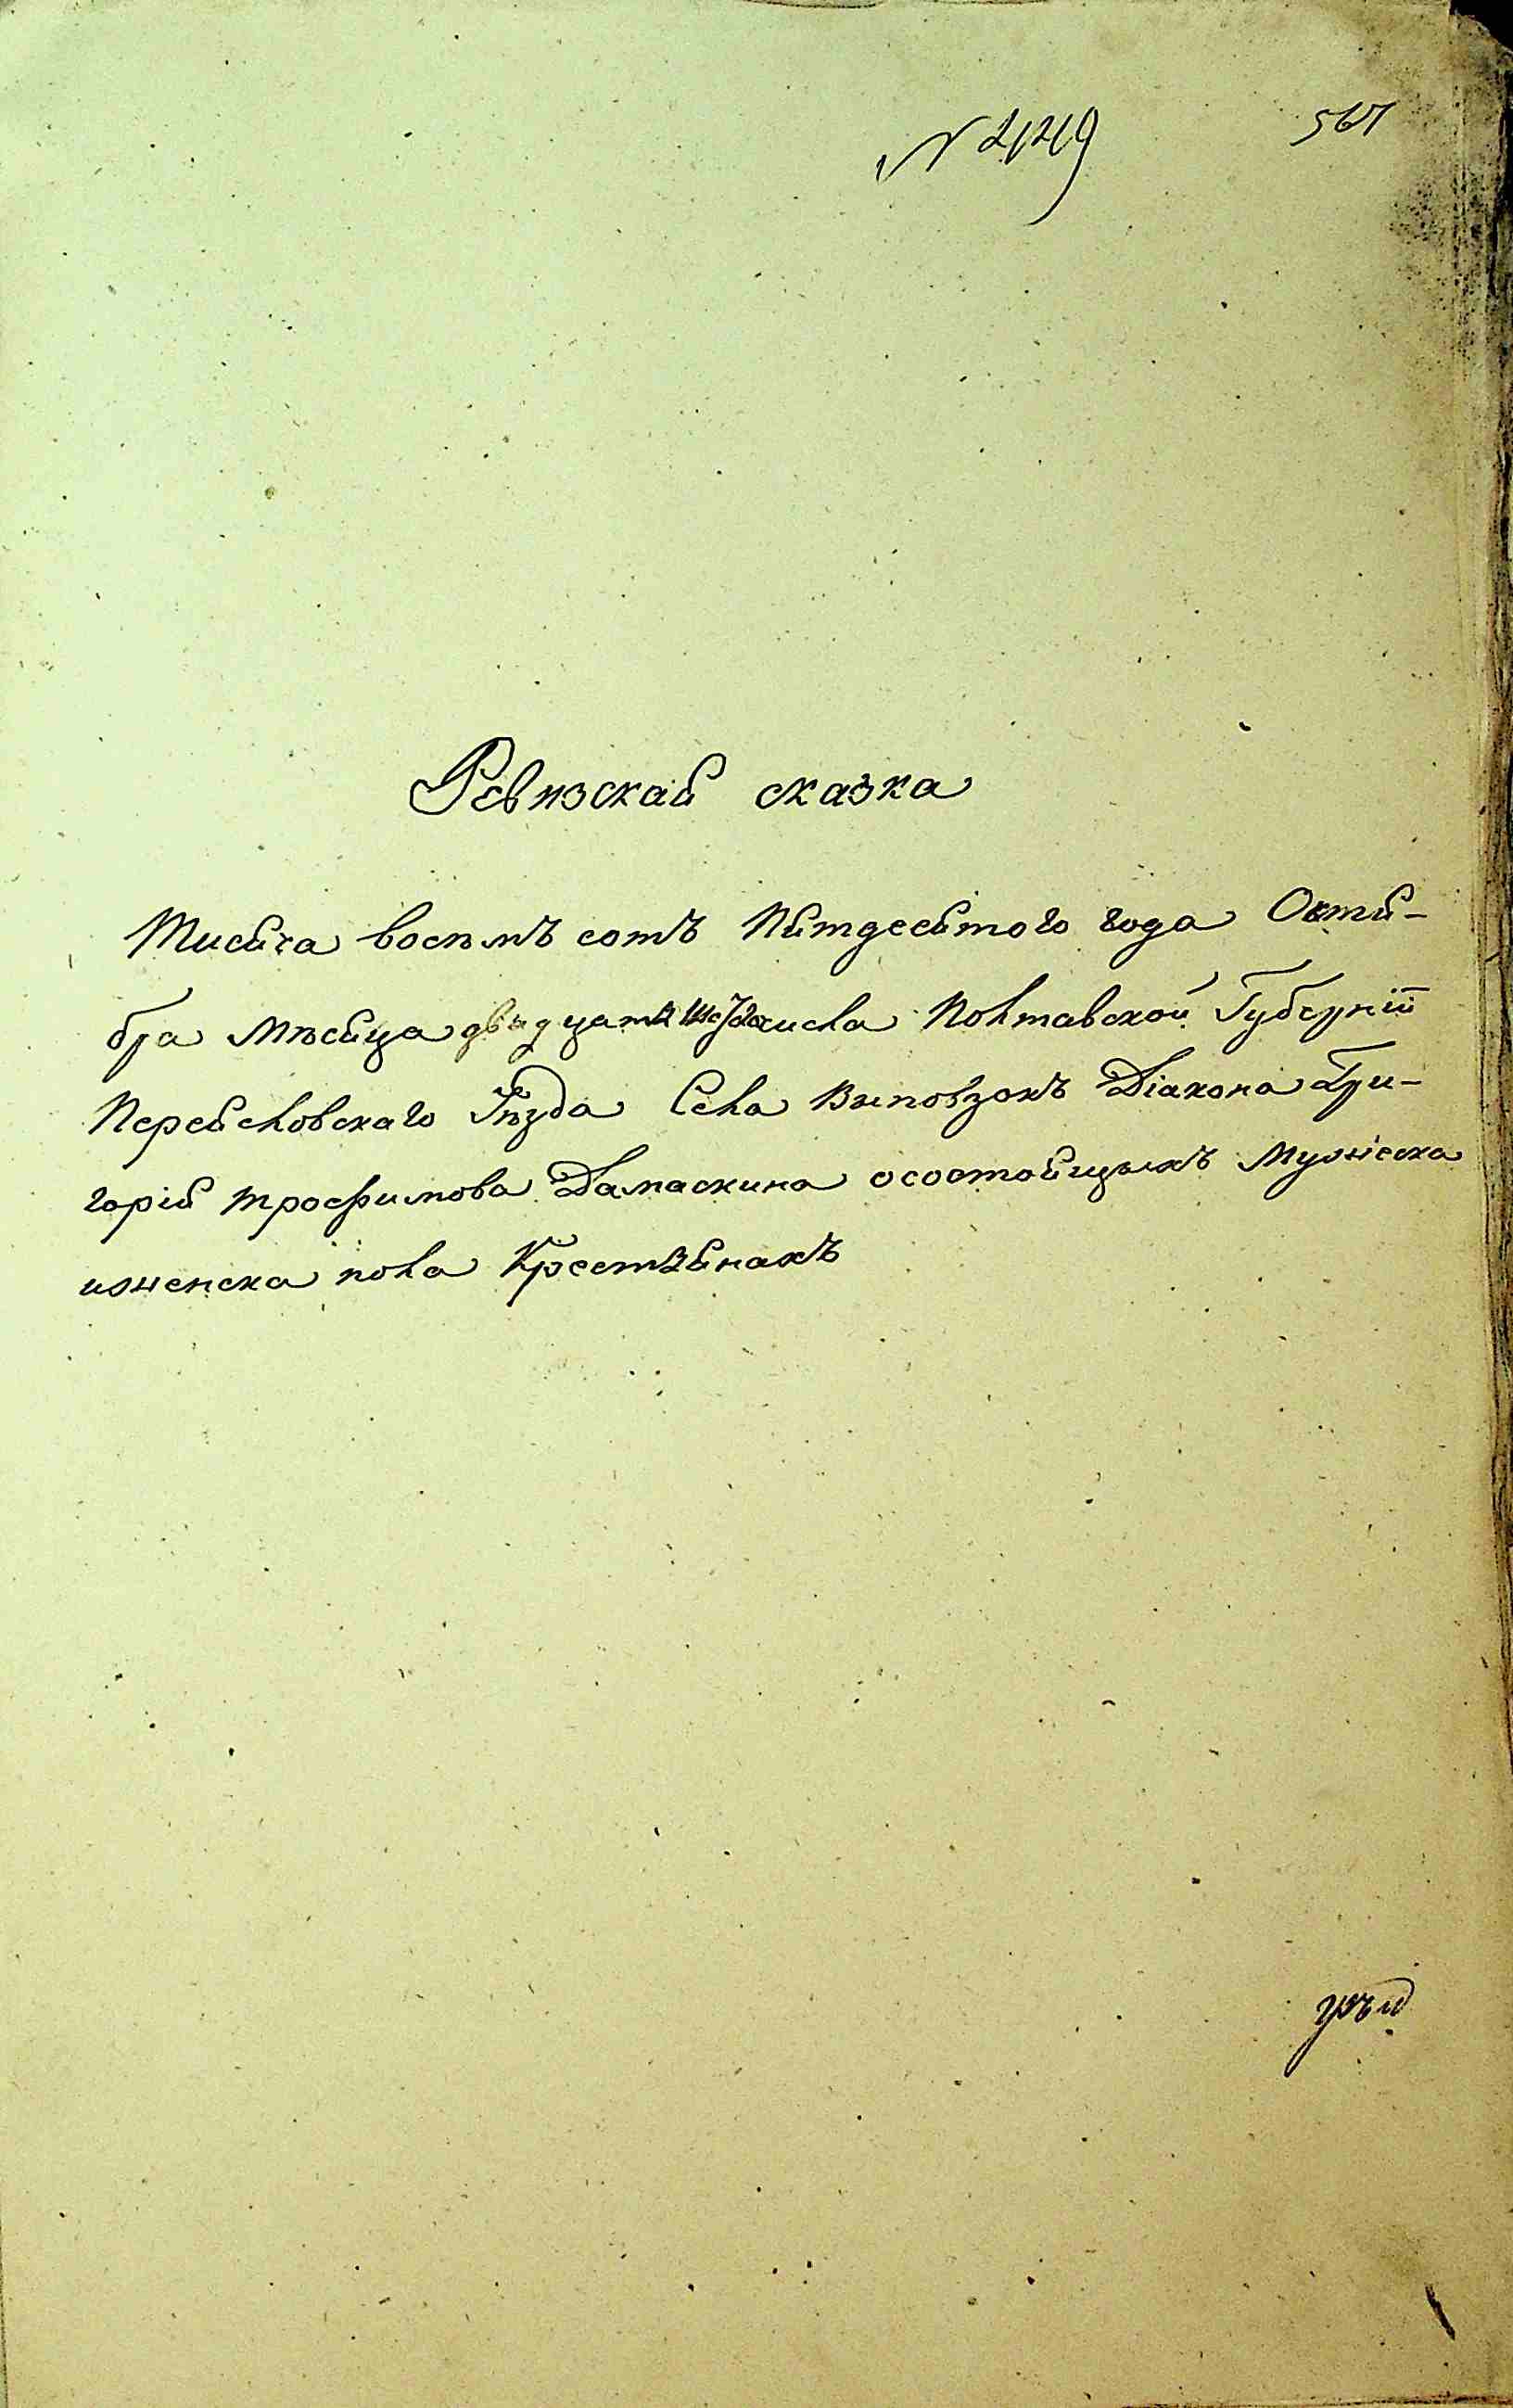 № 449
567
Ревизская сказка
Тисяча восемъ сотъ Пятдесятого года Октя-
бра Мѣсяца двадцать числа Полтавской Губерніи
Переясловскаго Уѣзда Села Виповзокъ Діакона Гри-
горія Трофимова Дамаскина о состоящихъ Мужеска
и женска пола Крестьянахъ